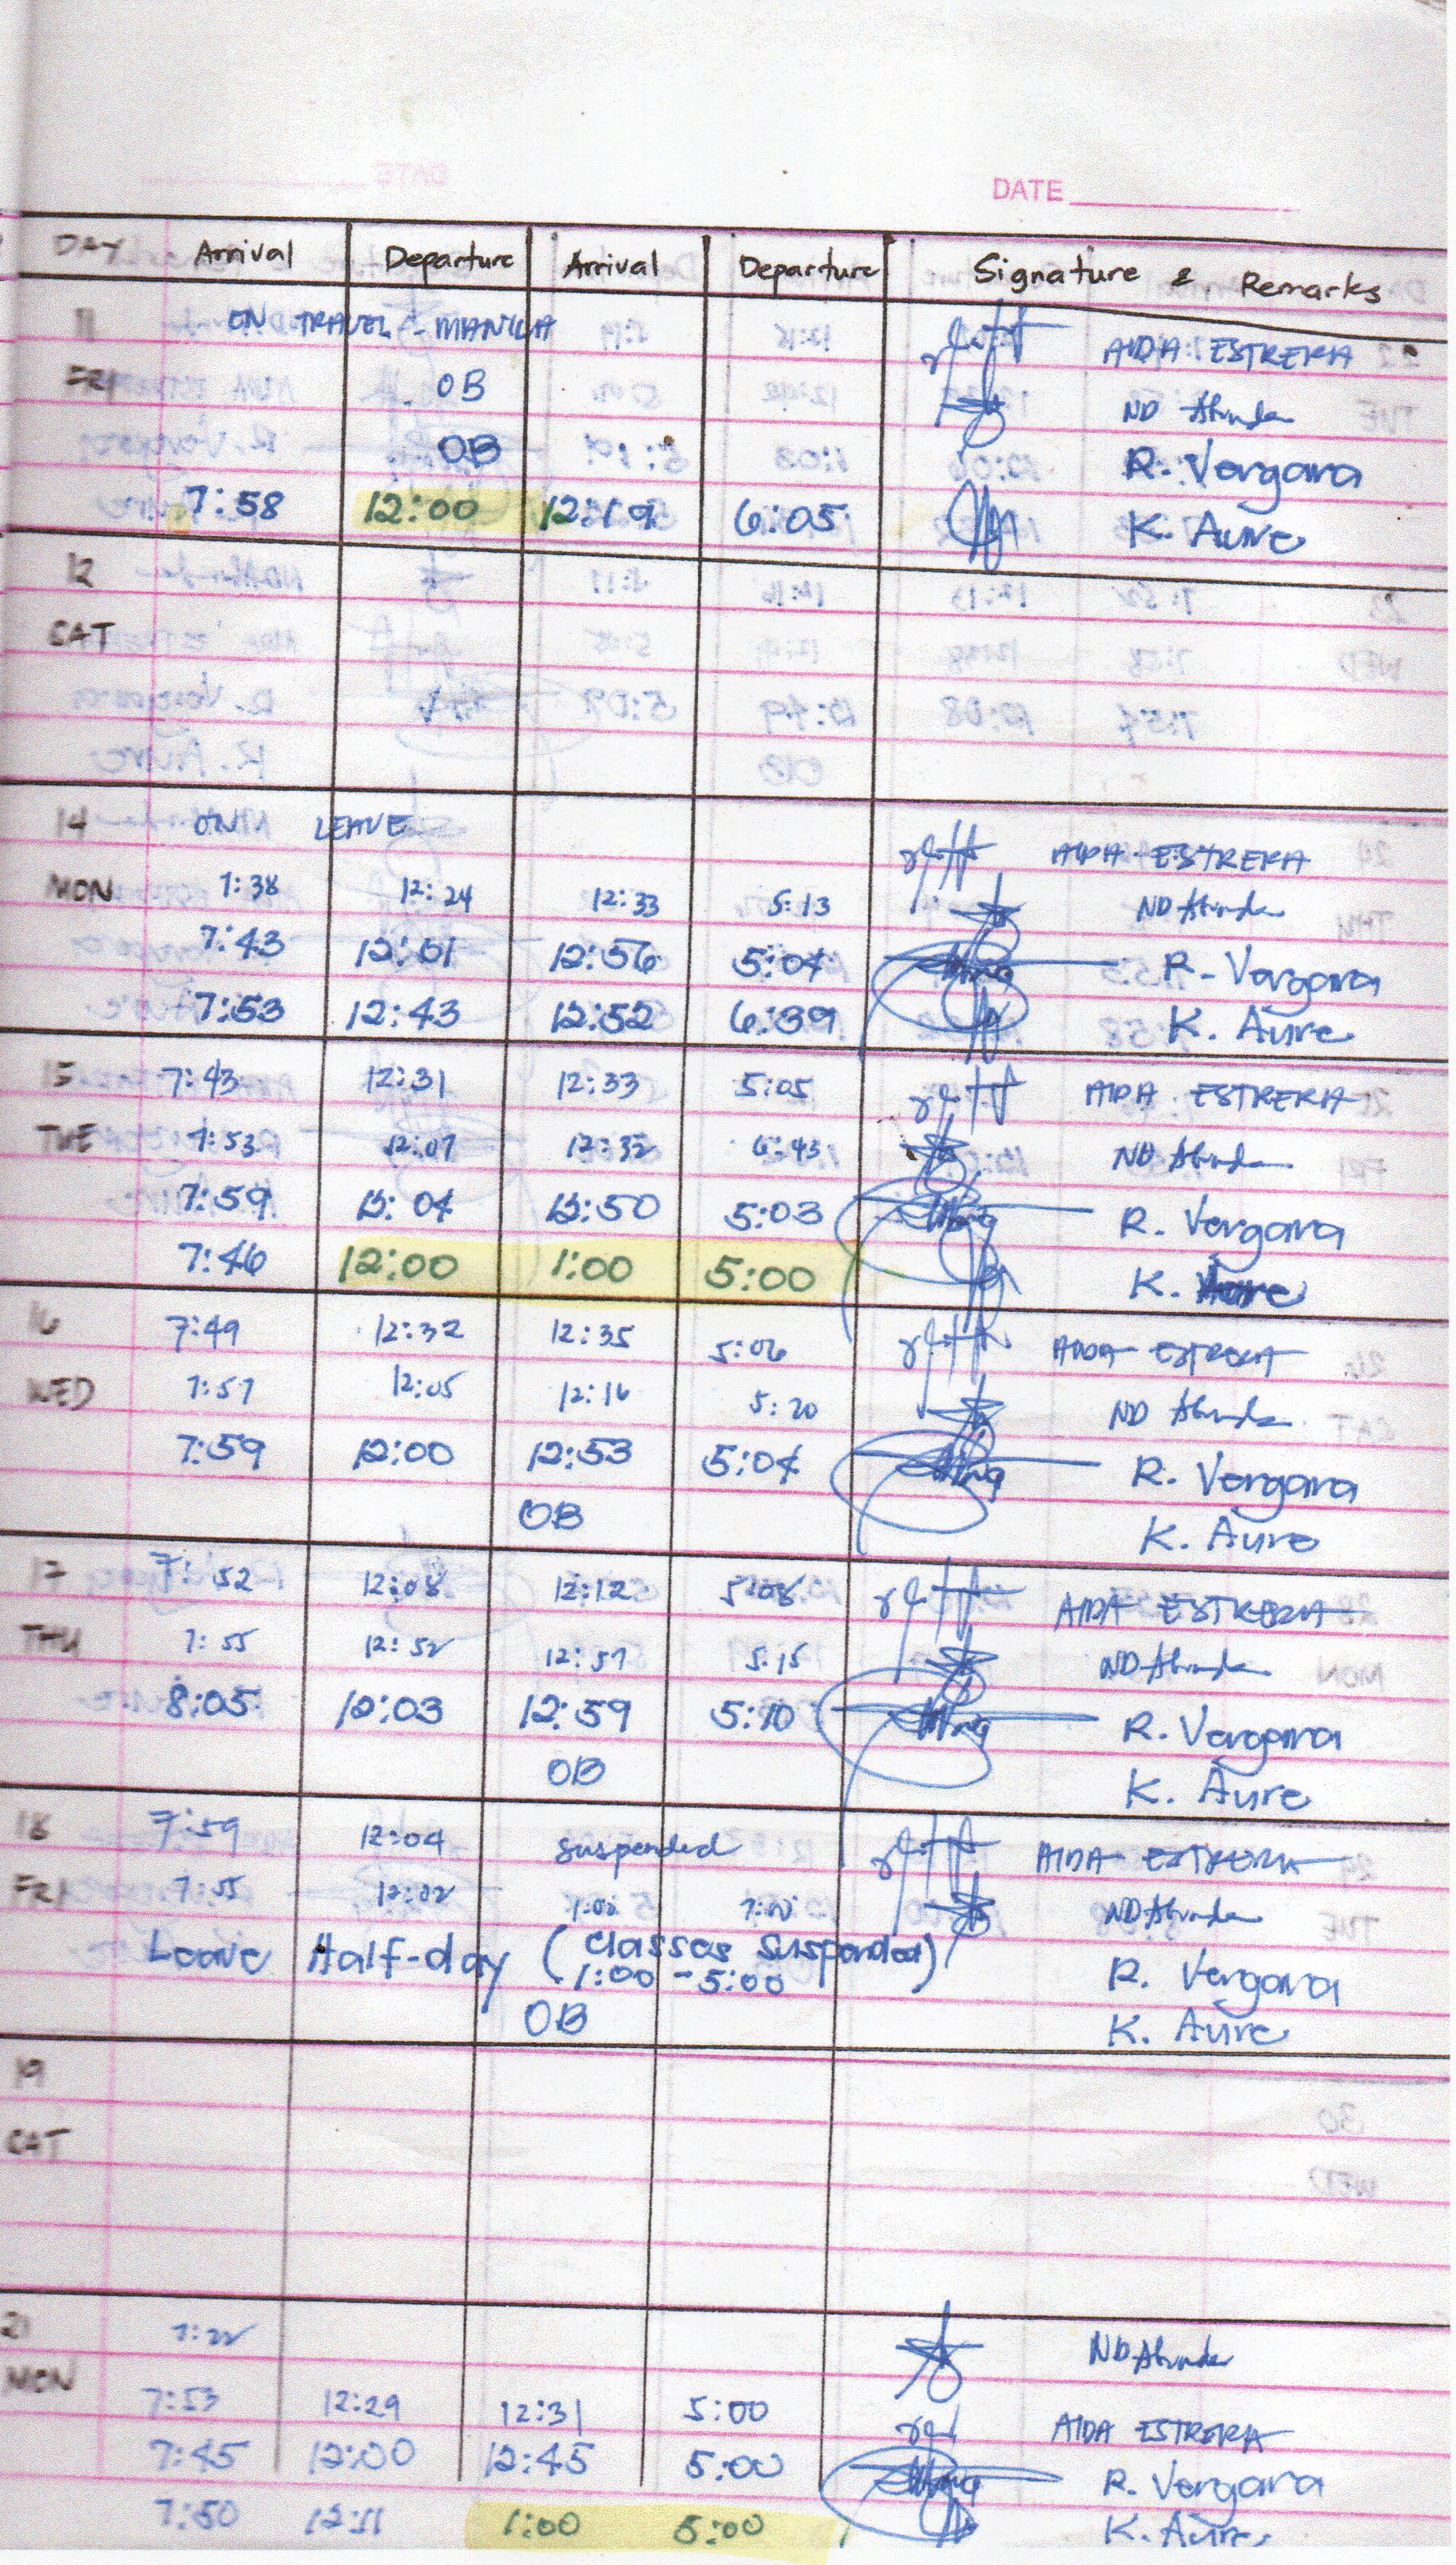 DATE
DAY Arrival Departure Arrival Departure Signature & Remarks
11 ON TRAVEL - MANILA AIDA ESTRERA
FRI OB ND
OB R. Vergara
7:58 12:00 12:19 6:05 K. Aure
12
SAT
14 ON LEAVE AIDA ESTRERA
MON 7:38 12:24 12:33 5:13 ND
7:43 12:01 12:56 5:04 R. Vergara
7:53 12:43 12:52 6:39 K. Aure
15 7:43 12:31 12:33 5:05 AIDA ESTRERA
TUE 7:53 12:07 12:32 6:43 ND
7:59 12:04 12:50 5:03 R. Vergara
7:46 12:00 1:00 5:00 K. Aure
16 7:49 12:32 12:35 5:06 AIDA ESTRERA
WED 7:57 12:05 12:16 5:20 ND
7:59 12:00 12:53 5:04 R. Vergara
OB K. Aure
17 7:52 12:08 12:12 5:08 AIDA ESTRERA
THU 7:55 12:52 12:57 5:15 ND
8:05 12:03 12:59 5:10 R. Vergara
OB K. Aure
18 7:59 12:04 suspended AIDA ESTRERA
FRI 7:55 12:02 1:00 ND
Leave Half-day (Classes Suspended) R. Vergara
1:00 - 5:00
OB K. Aure
19
SAT
21 7:22 ND
MON 7:53 12:29 12:31 5:00 AIDA ESTRERA
7:45 12:00 12:45 5:00 R. Vergara
7:50 12:11 1:00 5:00 K. Aure